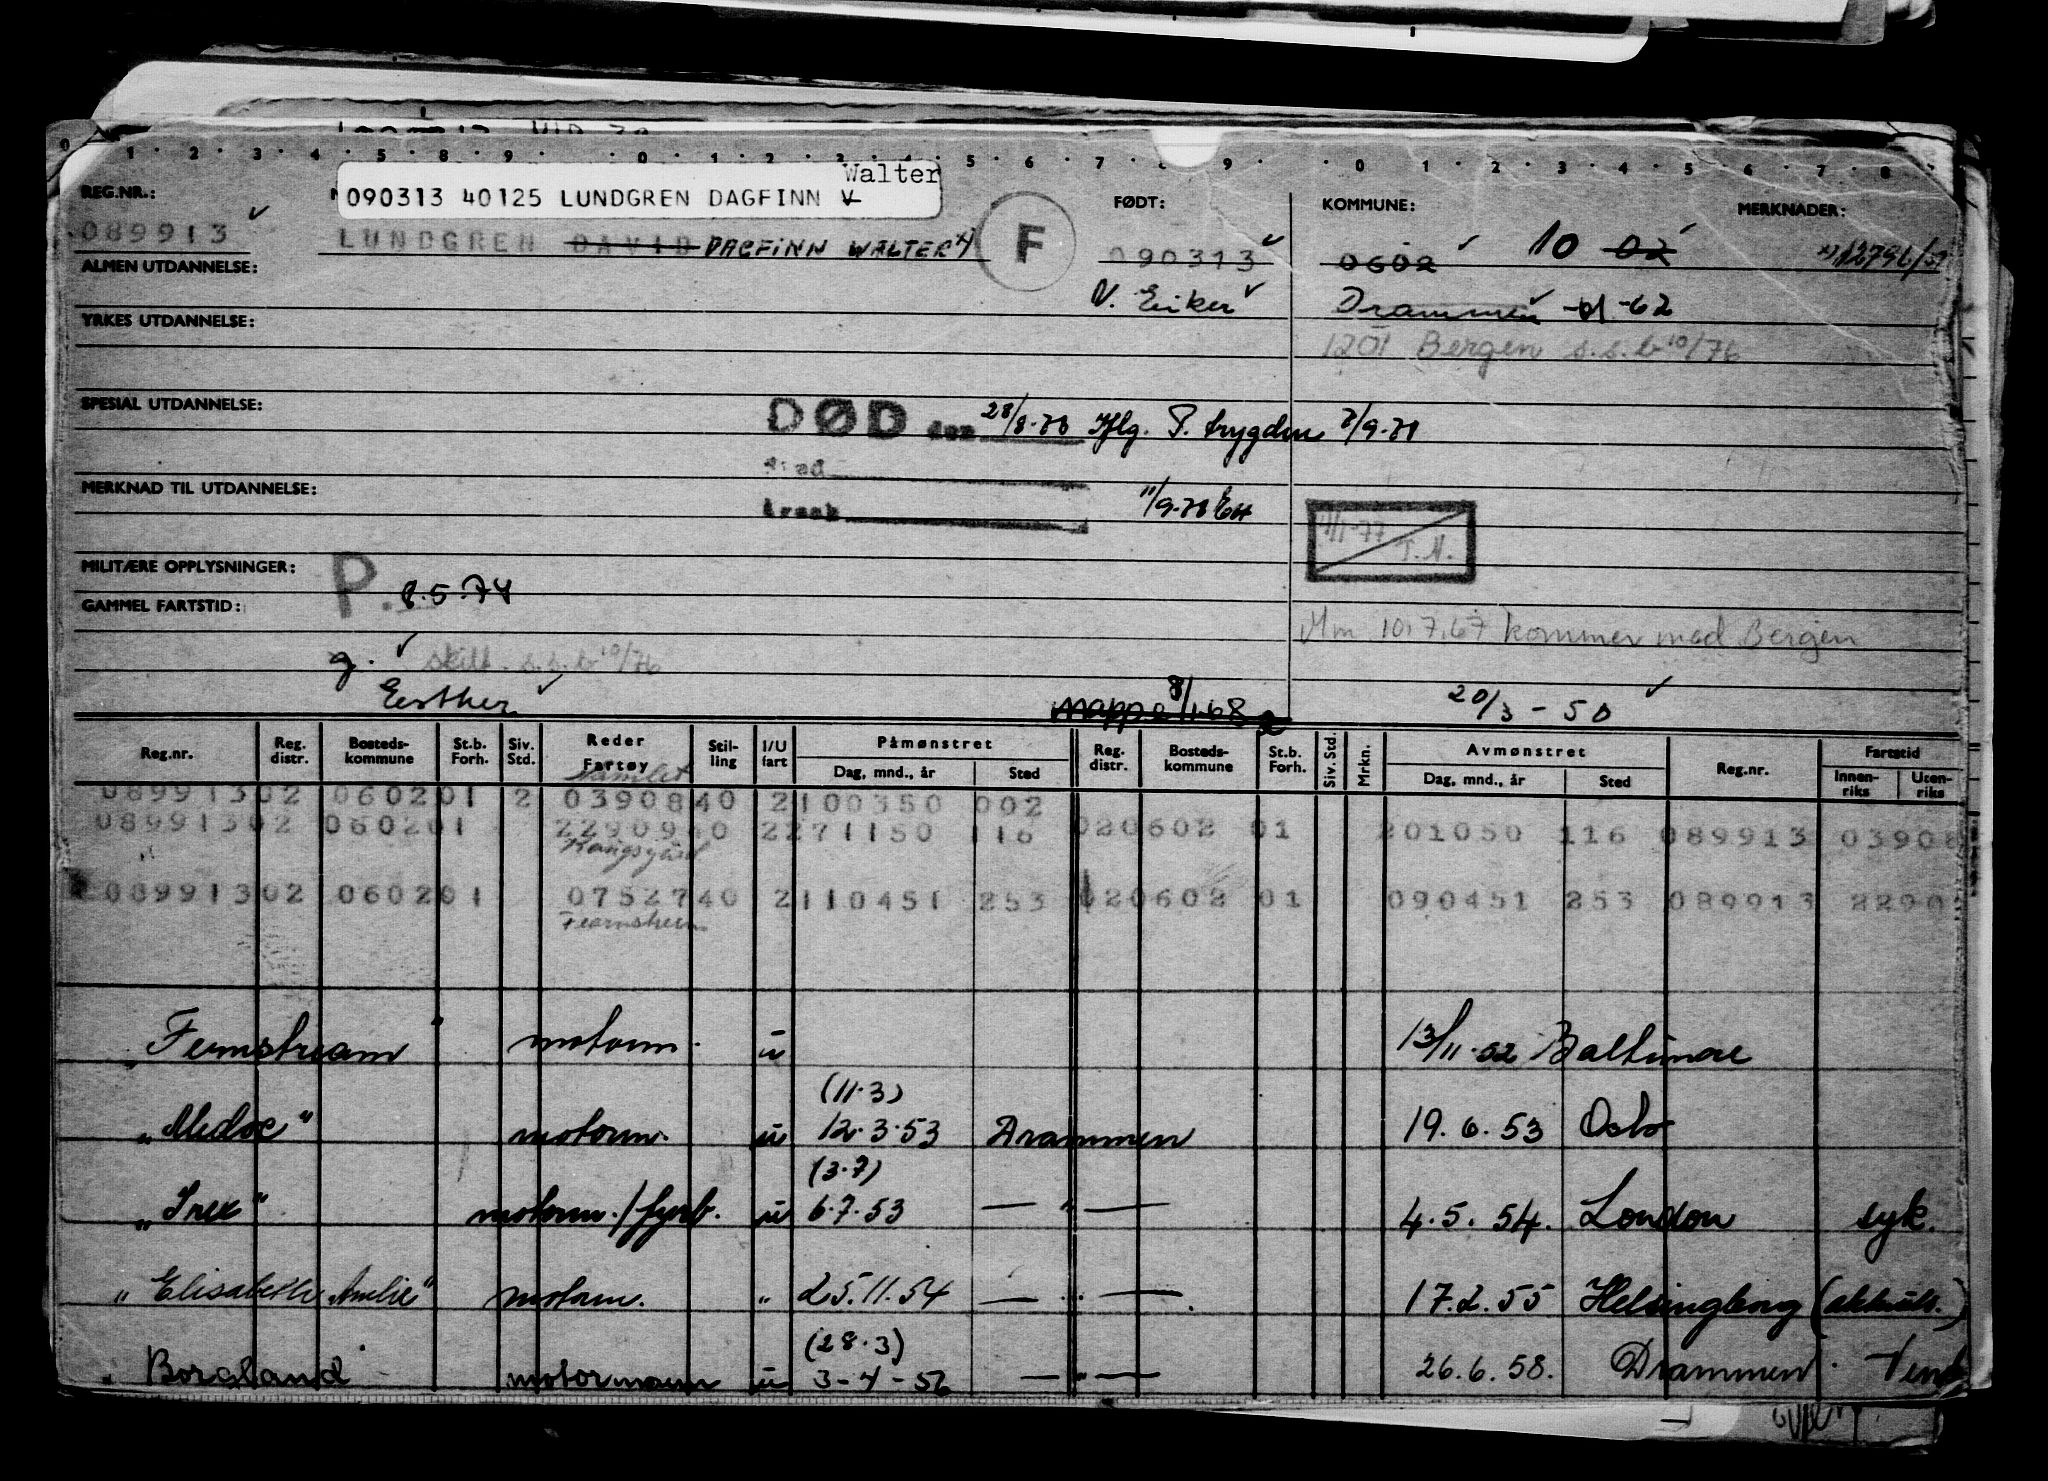 Walter
090313 40125 LUNDGREN DAGFINN V
REG.NR.:
FØDT:
KOMMUNE:
MERKNADER:
089913
LUNDGREN DAVID DAGFINN WALTER
F
090313
0602
10 02
ALMEN UTDANNELSE:
Eiker
Drammen -62
YRKES UTDANNELSE:
1201 Bergen s.s.b 10/76
SPESIAL UTDANNELSE:
DØD den 28/8-78 Iflg. P. trygden
sted
MERKNAD TIL UTDANNELSE:
årsak
T.M.
MILITÆRE OPPLYSNINGER:
P.
GAMMEL FARTSTID:
Mm 10.7.67 kommer med Bergen
g. skilt s.s.b 10/76
Esther
mappe 8/1-68
20/3-50
Reg.nr. Reg. distr. Bosteds- kommune St.b. Forh. Siv. Std. Reder Fartøy Stil- ling I/U fart Påmønstret Reg. distr. Bosteds- kommune St.b. Forh. Siv. Std. Mrkn. Avmønstret Reg.nr. Fartstid
Dag, mnd., år Sted Dag, mnd., år Sted Innen- riks Uten- riks
Samlet
089913 02 0602 01 2 03908 40 2 100350 002
089913 02 0602 01 22909 40 2 271150 116 02 0602 01 201050 116 089913 03908
Kongsgård
089913 02 0602 01 07527 40 2 110451 253 02 0602 01 090451 253 089913 2290
Fernstream
Fernstream motorm. u 13/11-52 Baltimore
(11.3)
"Medoc" motorm. u 12.3.53 Drammen 19.6.53 Oslo
(3.7)
"Irex" motorm./fyrb. u 6.7.53 — " — 4.5.54. London syk.
"Elisabeth Amelie" motorm. " 25.11.54 — " — 17.2.55 Helsingborg
(28.3)
" Borgland motormann u 3-4-56 — " — 26.6.58. Drammen